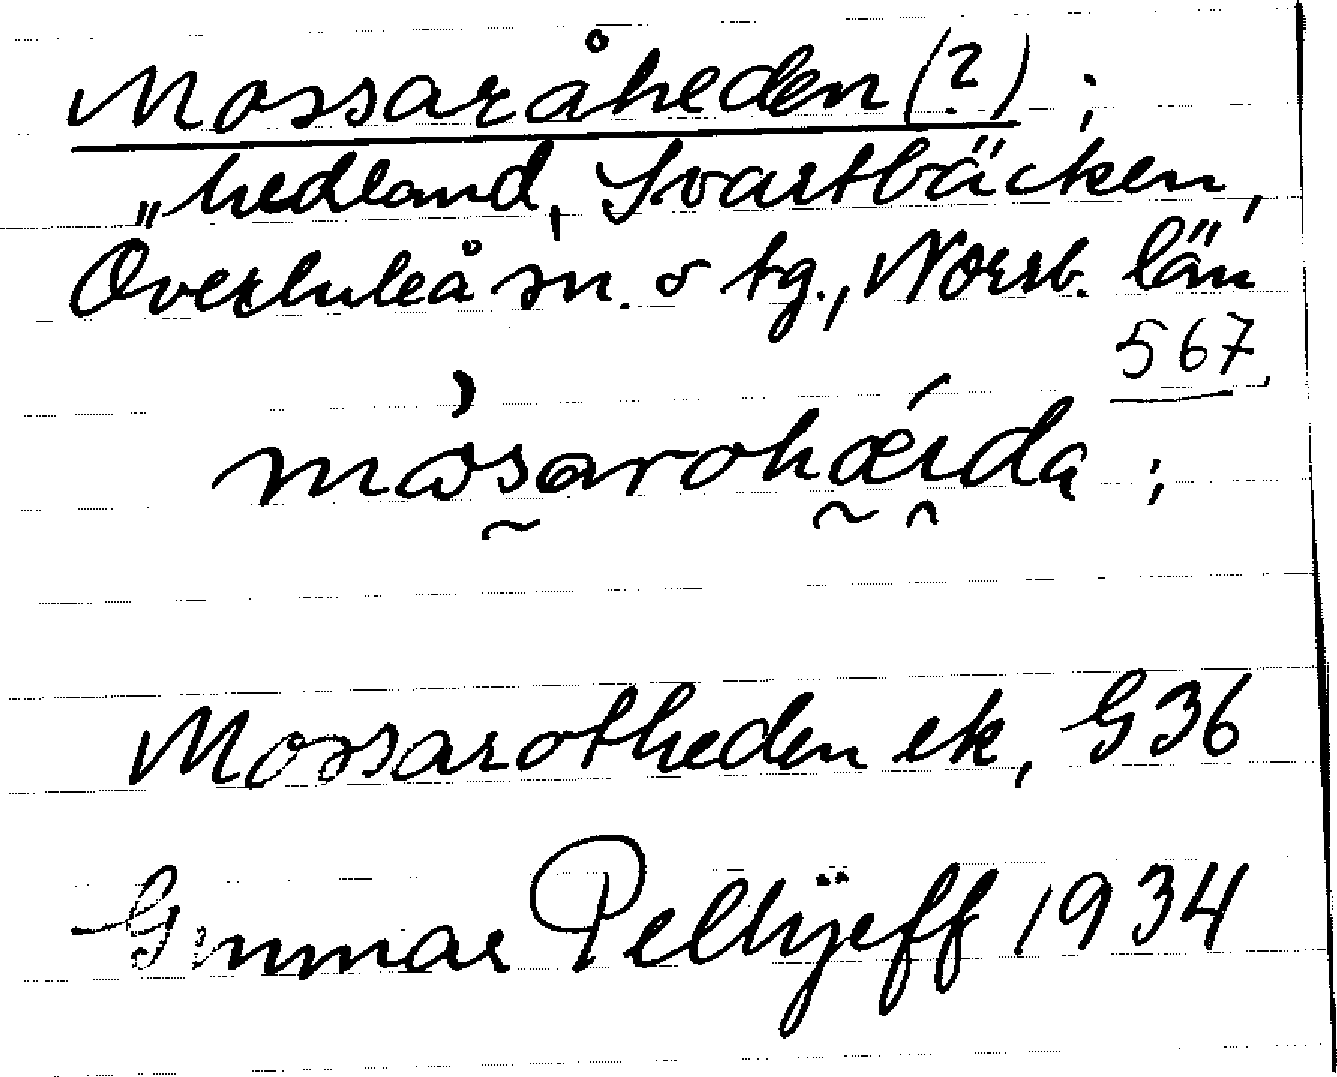 Mossaråheden (?) ;
„ hedland, Svartbäcken,
Överluleå sn. o tg., Norrb. län
567.
måsarohæida ;
Mossarotheden ek, G36
Gunnar Pellijeff 1934